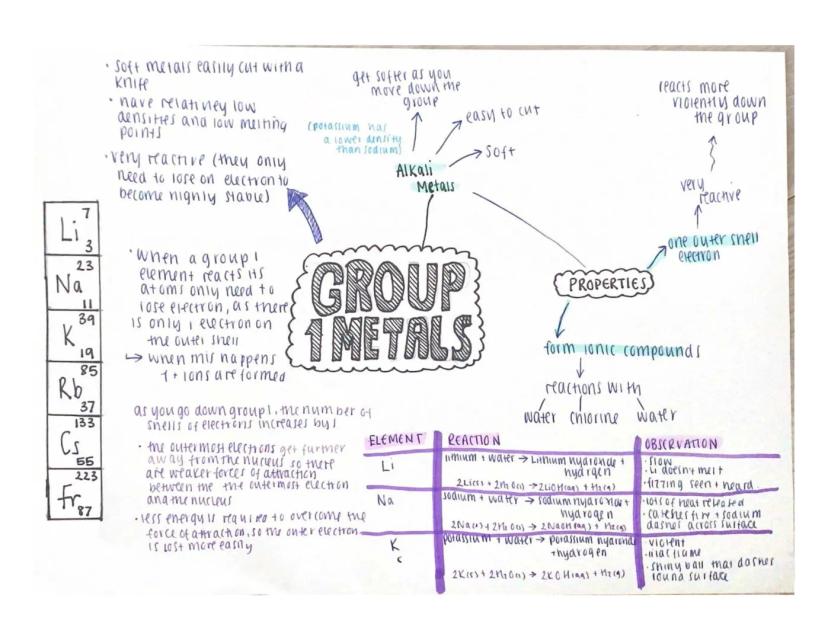 · Soft metals easily cut with a
knife
· have relatively low
densities and low melting
points
· very reactive (they only
need to lose on electron to
become highly stable)
get softer as you
move down the
group
(potassium has
a lower density
than sodium)
easy to cut
soft
Alkali
Metals
reacts more
violently down
the group
very
reactive
one outer shell
electron
PROPERTIES
form ionic compounds
reactions with
water chlorine water
GROUP
1 METALS
7
Li
3
23
Na
11
39
K
19
85
Rb
37
133
Cs
55
223
Fr
87
· When a group 1
element reacts its
atoms only need to
lose electron, as there
is only 1 electron on
the outer shell
↳ when this happens
1+ ions are formed
as you go down group 1, the number of
shells of electrons increases by 1
· the outermost electrons get further
away from the nucleus so there
are weaker forces of attraction
between the the outermost electron
and the nucleus
· less energy is required to overcome the
force of attraction, so the outer electron
is lost more easily
ELEMENT REACTION OBSERVATION
Li
lithium + water → Lithium hydroxide +
hydrogen
2Li(s) + 2H₂O(l) → 2LiOH(aq) + H₂(g)
· slow
· Li doesn't melt
· fizzing seen + heard
Na
sodium + water → sodium hydroxide +
hydrogen
2Na(s) + 2H₂O(l) → 2NaOH(aq) + H₂(g)
· lots of heat released
· catches fire + sodium
dashes across surface
K
c
potassium + water → potassium hydroxide
+ hydrogen
2K(s) + 2H₂O(l) → 2KOH(aq) + H₂(g)
· violent
· lilac flame
· shiny ball that dashes
round surface